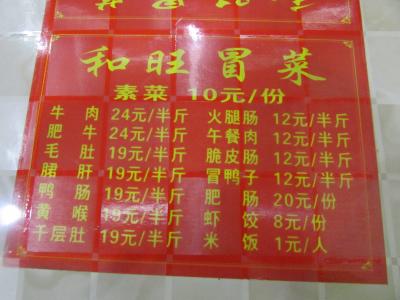 和旺冒菜
素菜 10元/份
牛肉 24元/半斤 火腿肠 12元/半斤
肥牛 24元/半斤 午餐肉 12元/半斤
毛肚 19元/半斤 脆皮肠 12元/半斤
胗肝 19元/半斤 冒鸭子 12元/半斤
鸭肠 19元/半斤 肥肠 20元/份
黄喉 19元/半斤 虾饺 8元/份
千层肚 19元/半斤 米饭 1元/人